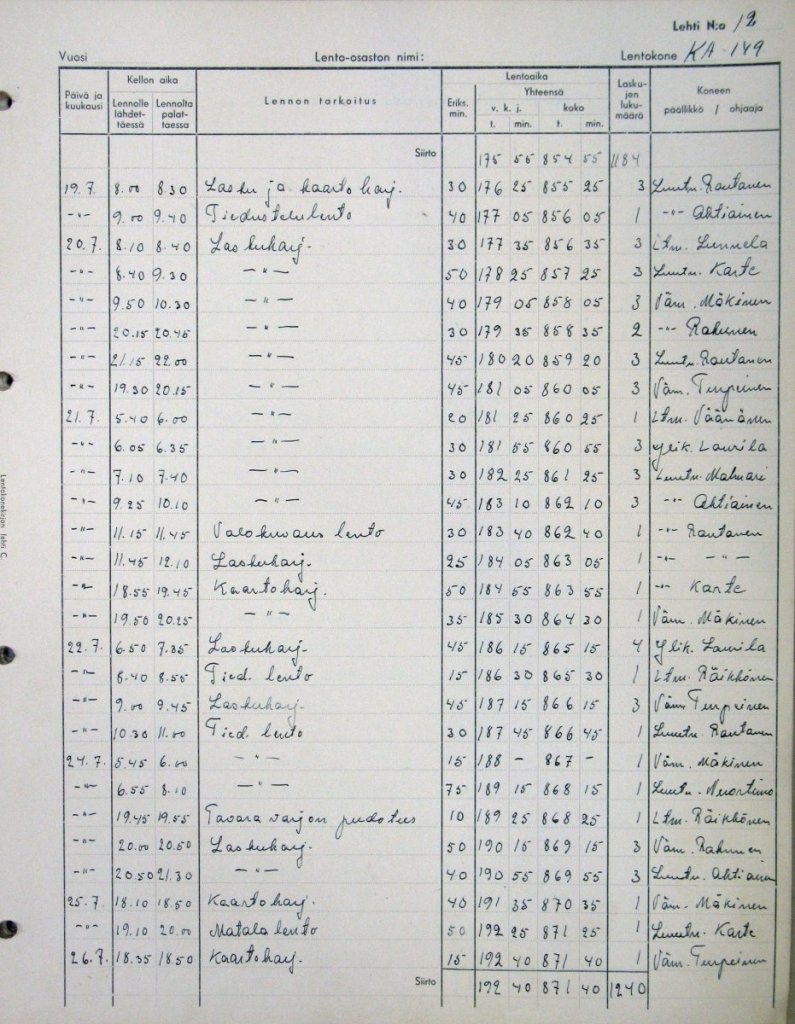 Lehti N:o 12
Vuosi Lento-osaston nimi: Lentokone KA-149
Päivä ja kuukausi Kellon aika Lennolle lähdettäessä Lennolta palattaessa Lennon tarkoitus Lentoaika Eriks. min. Yhteensä v. k. j. t. min. koko t. min. Laskujen lukumäärä Koneen päällikkö / ohjaaja
Siirto 175 55 854 55 1184
19.7. 8.00 8.30 Lasku ja kaarto harj. 30 176 25 855 25 3 Luutn. Rautanen
-"- 9.00 9.40 Tiedustelulento 40 177 05 856 05 1 -"- Ahtiainen
20.7. 8.10 8.40 Laskuharj. 30 177 35 856 35 3 Ltm. Lunnela
-"- 8.40 9.30 -"- 50 178 25 857 25 3 Luutn. Karte
-"- 9.50 10.30 -"- 40 179 05 858 05 3 Väm. Mäkinen
-"- 20.15 20.45 -"- 30 179 35 858 35 2 -"- Rahunen
-"- 21.15 22.00 -"- 45 180 20 859 20 3 Luutn. Rautanen
-"- 19.30 20.15 -"- 45 181 05 860 05 3 Väm. Turpeinen
21.7. 5.40 6.00 -"- 20 181 25 860 25 1 Ltm. Väänänen
-"- 6.05 6.35 -"- 30 181 55 860 55 3 Ylik. Laurila
-"- 7.10 7.40 -"- 30 182 25 861 25 3 Luutn. Malmari
-"- 9.25 10.10 -"- 45 183 10 862 10 3 -"- Ahtiainen
-"- 11.15 11.45 Valokuvaus lento 30 183 40 862 40 1 -"- Rautanen
-"- 11.45 12.10 Laskuharj. 25 184 05 863 05 1 -"- -"-
-"- 18.55 19.45 Kaartoharj. 50 184 55 863 55 1 -"- Karte
-"- 19.50 20.25 -"- 35 185 30 864 30 1 Väm. Mäkinen
22.7. 6.50 7.35 Laskuharj. 45 186 15 865 15 4 Ylik. Laurila
-"- 8.40 8.55 Tied. lento 15 186 30 865 30 1 Ltm. Räikkönen
-"- 9.00 9.45 Laskuharj. 45 187 15 866 15 3 Väm. Turpeinen
-"- 10.30 11.00 Tied. lento 30 187 45 866 45 1 Luutn. Rautanen
24.7. 5.45 6.00 -"- 15 188 - 867 - 1 Väm. Mäkinen
-"- 6.55 8.10 -"- 75 189 15 868 15 1 Luutn. Nuortimo
-"- 19.45 19.55 Tavara varjon pudotus 10 189 25 868 25 1 Ltm. Räikkönen
-"- 20.00 20.50 Laskuharj. 50 190 15 869 15 3 Väm. Rahunen
-"- 20.50 21.30 -"- 40 190 55 869 55 3 Luutn. Ahtiainen
25.7. 18.10 18.50 Kaartoharj. 40 191 35 870 35 1 Väm. Mäkinen
-"- 19.10 20.00 Matala lento 50 192 25 871 25 1 Luutn. Karte
26.7. 18.35 18.50 Kaartoharj. 15 192 40 871 40 1 Väm. Turpeinen
Siirto 192 40 871 40 1240
Lentokonekirjan lehti C.